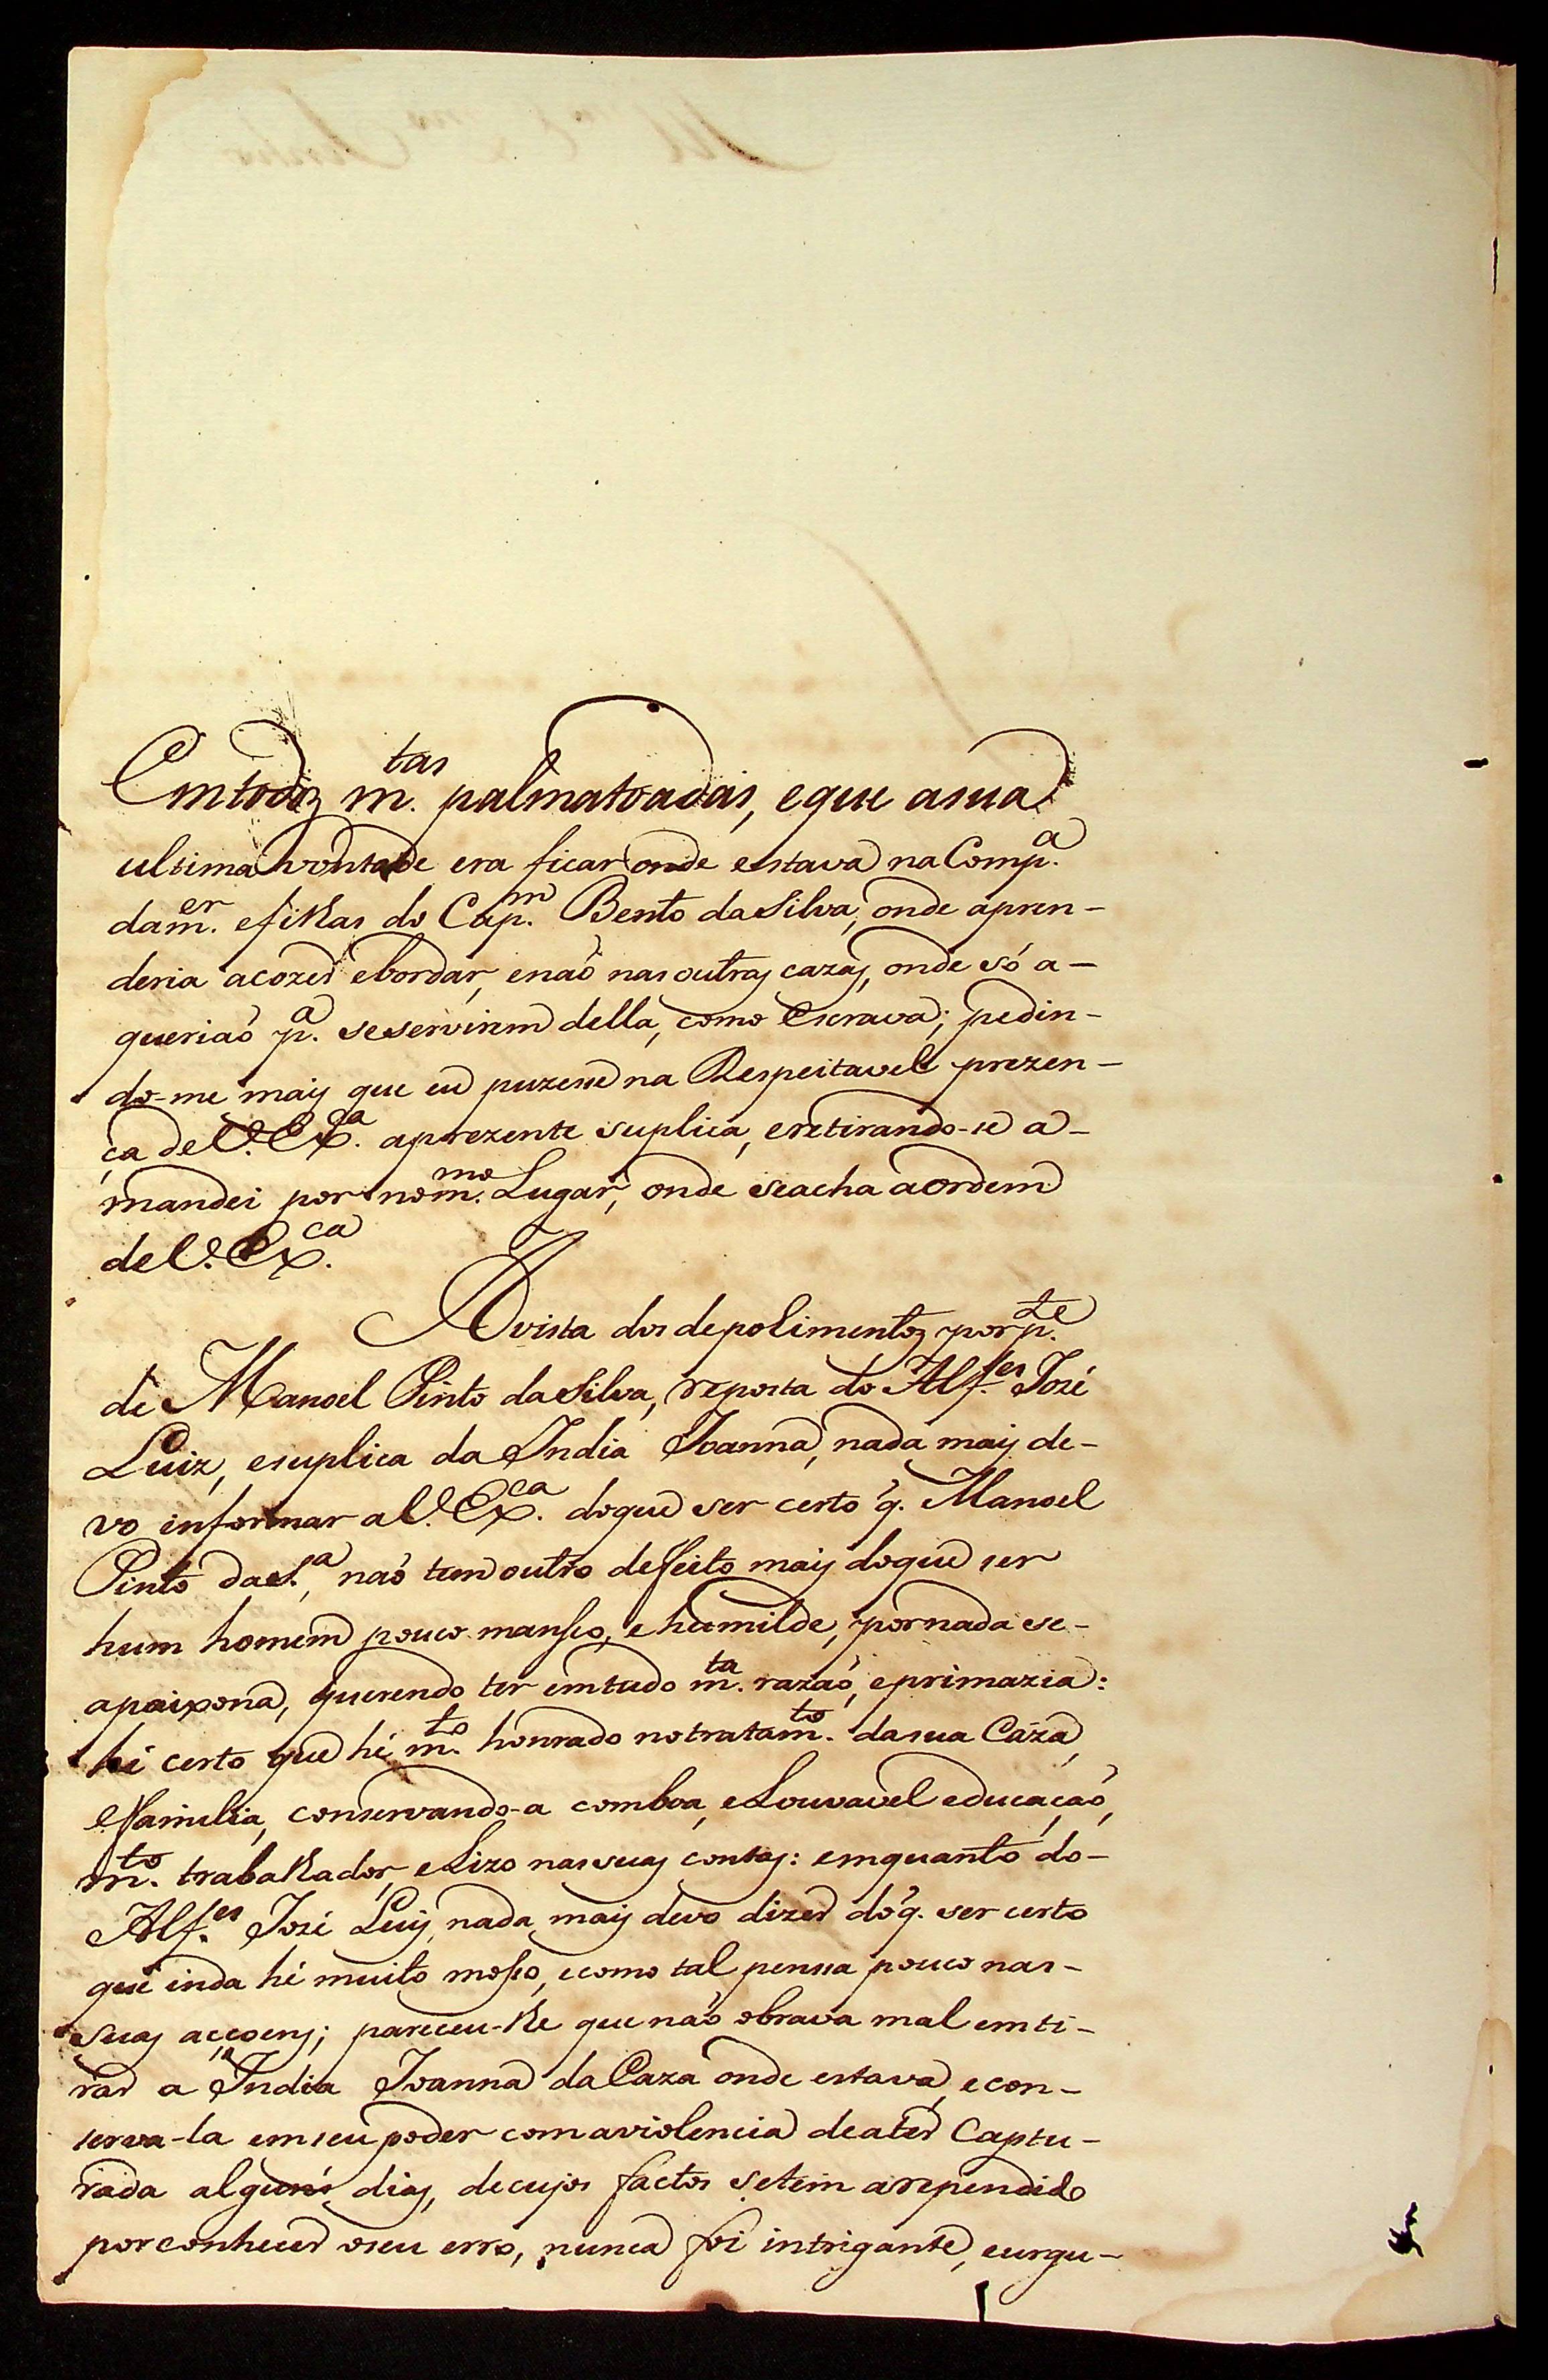 Emtodos m.tas palmatoadas, eque asua
ultima vontade era ficar onde estava na Comp.a
dam.er efilhas do Cap.m Bento da Silva, onde apren-
deria acozer ebordar, enaõ nas outras cazas, onde só a-
queriaõ p.a seservirem della, como Escrava; pedin-
do-me mais que eu puzesse na Respeitavel prezen-
ça de V. Ex.a aprezente suplica, eretirando-se a-
mandei por no m.mo Lugar, onde seacha aordem
de V. Ex.ca
Avista dos depolimentos por p.te
de Manoel Pinto da Silva, reposta do Alf.es José
Luiz, esuplica da India Joanna, nada mais de-
vo informar a V. Ex.ca doque ser certo q. Manoel
Pinto da S.a, naõ tem outro deffeito mais doque ser
hum homem pouco manso, e humilde, pornada se-
apaixona, querendo ter emtudo m.ta razaõ, eprimazia:
hé certo que hé m.to honrado notratam.to dasua Caza,
eFamilia, conservando-a comboa, eLouvavel educaçaõ,
m.to trabalhador, eLizo nassuas contas: emquanto do-
Alf.es José Luis, nada mais devo dizer do q. ser certo
que inda hé muito mosso, ecomo tal penssa pouco nas-
suas acçoens; pareceu-lhe que naõ obrava mal emti-
rar a India Joanna da Caza onde estava, econ-
serva-la emseu poder comaviolencia deater Captu-
rada alguns dias, decujos factos setem arependido
porconhecer oseu erro, nunca foi intrigante, eurgu-